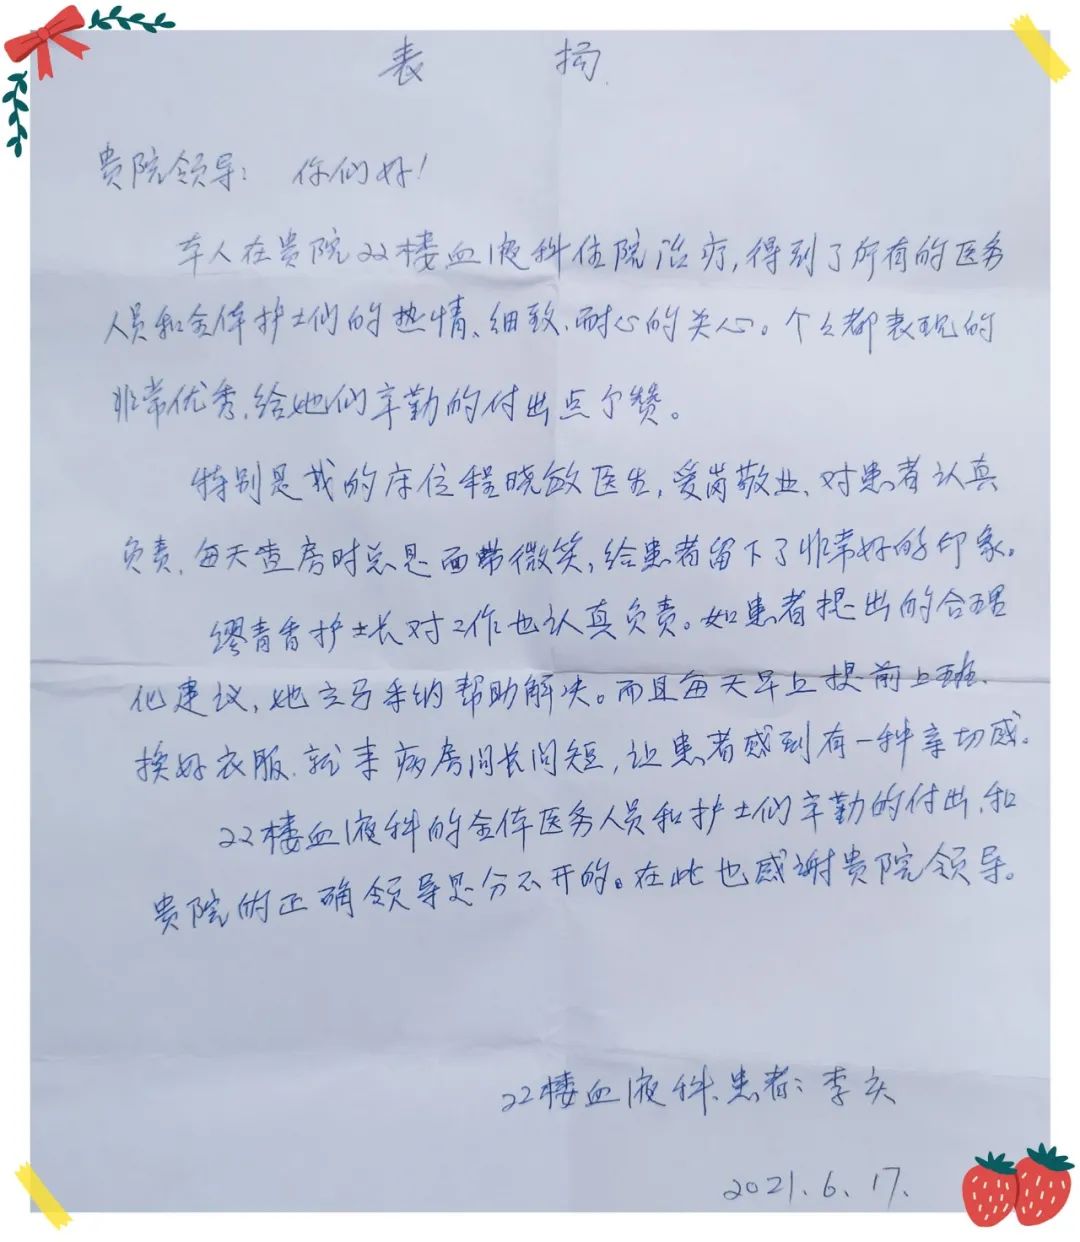 表 扬
贵院领导： 你们好！
本人在贵院22楼血液科住院治疗，得到了所有的医务
人员和全体护士们的热情、细致、耐心的关心。个个都表现的
非常优秀，给她们辛勤的付出点个赞。
特别是我的床位程晓敏医生，爱岗敬业、对患者认真
负责，每天查房时总是面带微笑，给患者留下了非常好的印象。
缪青香护士长对工作也认真负责。如患者提出的合理
化建议，她立马采纳帮助解决。而且每天早上提前上班、
换好衣服、就来病房问长问短，让患者感到有一种亲切感。
22楼血液科的全体医务人员和护士们辛勤的付出，和
贵院的正确领导是分不开的。在此也感谢贵院领导。
22楼血液科、患者：李庆
2021.6.17.